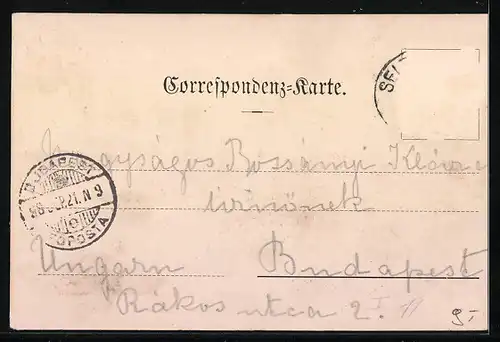 Correspondenz-Karte.
SEL
BUDAPEST
98
21. N 9
FŐPOSTA
Nagyságos Bossányi
Ungarn Budapest
Rákos utca 2. I 11
9,-